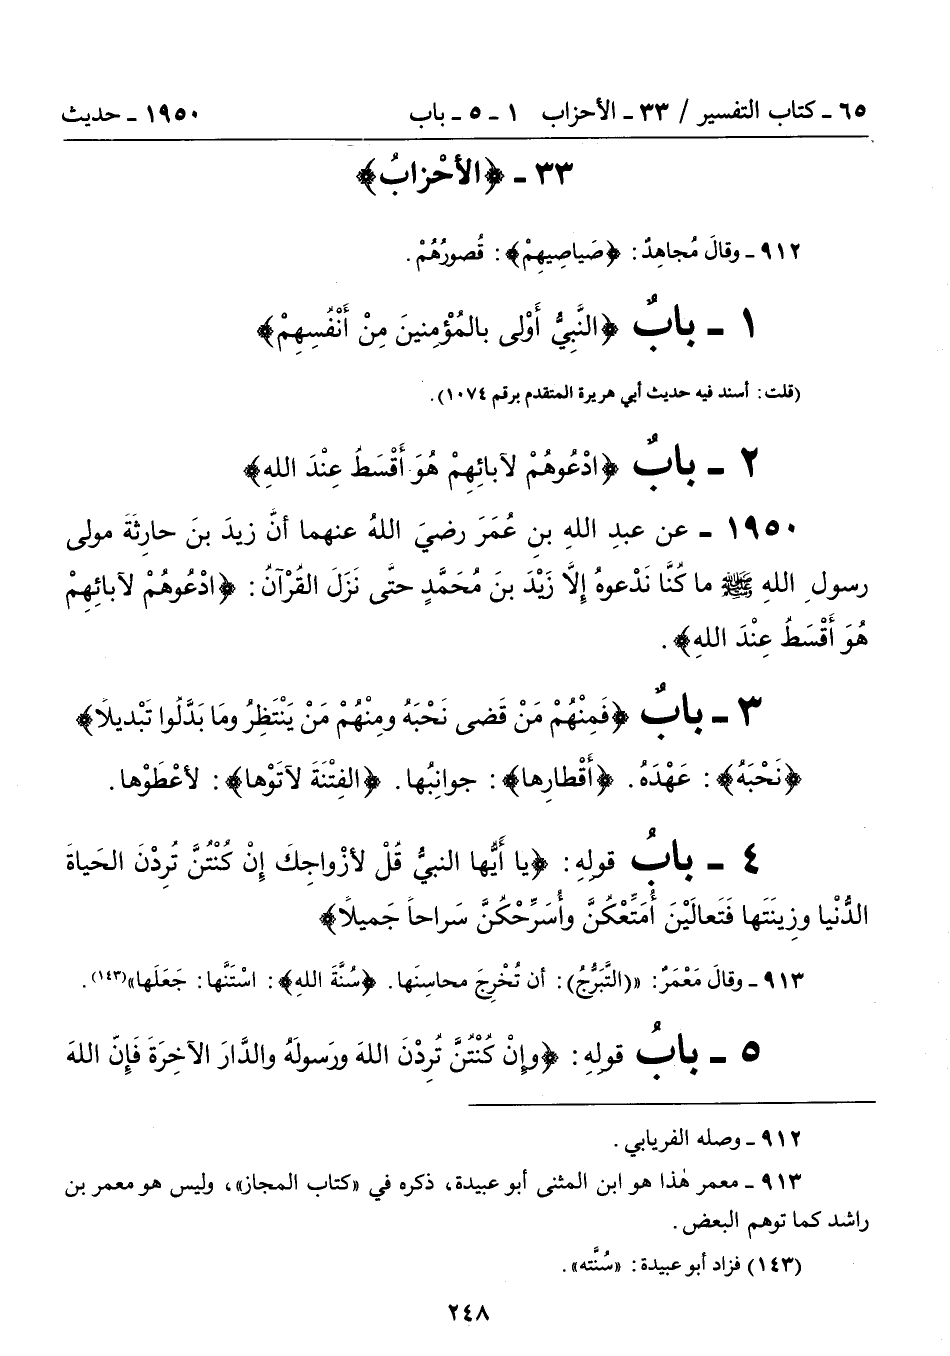 ٦٥ ـ كتاب التفسير / ٣٣ ـ الأحزاب ١ ـ ٥ ـ باب ١٩٥٠ ـ حديث
٣٣ ـ ﴿الأَحْزابُ﴾
٩١٢ ـ وقالَ مُجاهِدٌ: ﴿صَياصِيهِمْ﴾: قُصورُهُمْ.
١ ـ بابٌ ﴿النَّبِيُّ أَوْلى بالمُؤْمِنينَ مِنْ أَنْفُسِهِمْ﴾
(قلت: أسند فيه حديث أبي هريرة المتقدم برقم ١٠٧٤).
٢ ـ بابٌ ﴿ادْعُوهُمْ لآبائِهِمْ هُوَ أَقْسَطُ عِنْدَ اللهِ﴾
١٩٥٠ ـ عن عبدِ اللهِ بنِ عُمَرَ رضيَ اللهُ عنهما أنَّ زيدَ بنَ حارِثَةَ مولى
رسولِ اللهِ ﷺ ما كُنَّا نَدْعوهُ إلَّا زَيْدَ بنَ مُحَمَّدٍ حتَّى نَزَلَ القُرْآنُ: ﴿ادْعُوهُمْ لآبائِهِمْ
هُوَ أَقْسَطُ عِنْدَ اللهِ﴾.
٣ ـ بابٌ ﴿فَمِنْهُمْ مَنْ قَضى نَحْبَهُ ومِنْهُمْ مَنْ يَنْتَظِرُ وما بَدَّلُوا تَبْديلًا﴾
﴿نَحْبَهُ﴾: عَهْدَهُ. ﴿أَقْطارِها﴾: جوانِبُها. ﴿الفِتْنَةَ لآتَوْها﴾: لأعْطَوْها.
٤ ـ بابُ قولِهِ: ﴿يا أَيُّها النبيُّ قُلْ لأزْواجِكَ إِنْ كُنْتُنَّ تُرِدْنَ الحَياةَ
الدُّنْيا وزِينَتَها فَتَعالَيْنَ أُمَتِّعْكُنَّ وأُسَرِّحْكُنَّ سَراحاً جَميلًا﴾
٩١٣ ـ وقالَ مَعْمَرٌ: «(التَّبَرُّجُ): أن تُخْرِجَ محاسِنَها. ﴿سُنَّةَ اللهِ﴾: اسْتَنَّها: جَعَلَها»(١٤٣).
٥ ـ بابُ قولِهِ: ﴿وإِنْ كُنْتُنَّ تُرِدْنَ اللهَ ورَسولَهُ والدَّارَ الآخِرَةَ فَإِنَّ اللهَ
٩١٢ ـ وصله الفريابي.
٩١٣ ـ معمر هٰذا هو ابن المثنى أبو عبيدة، ذكره في «كتاب المجاز»، وليس هو معمر بن
راشد كما توهم البعض.
(١٤٣) فزاد أبو عبيدة: «سُنَّته».
٢٤٨